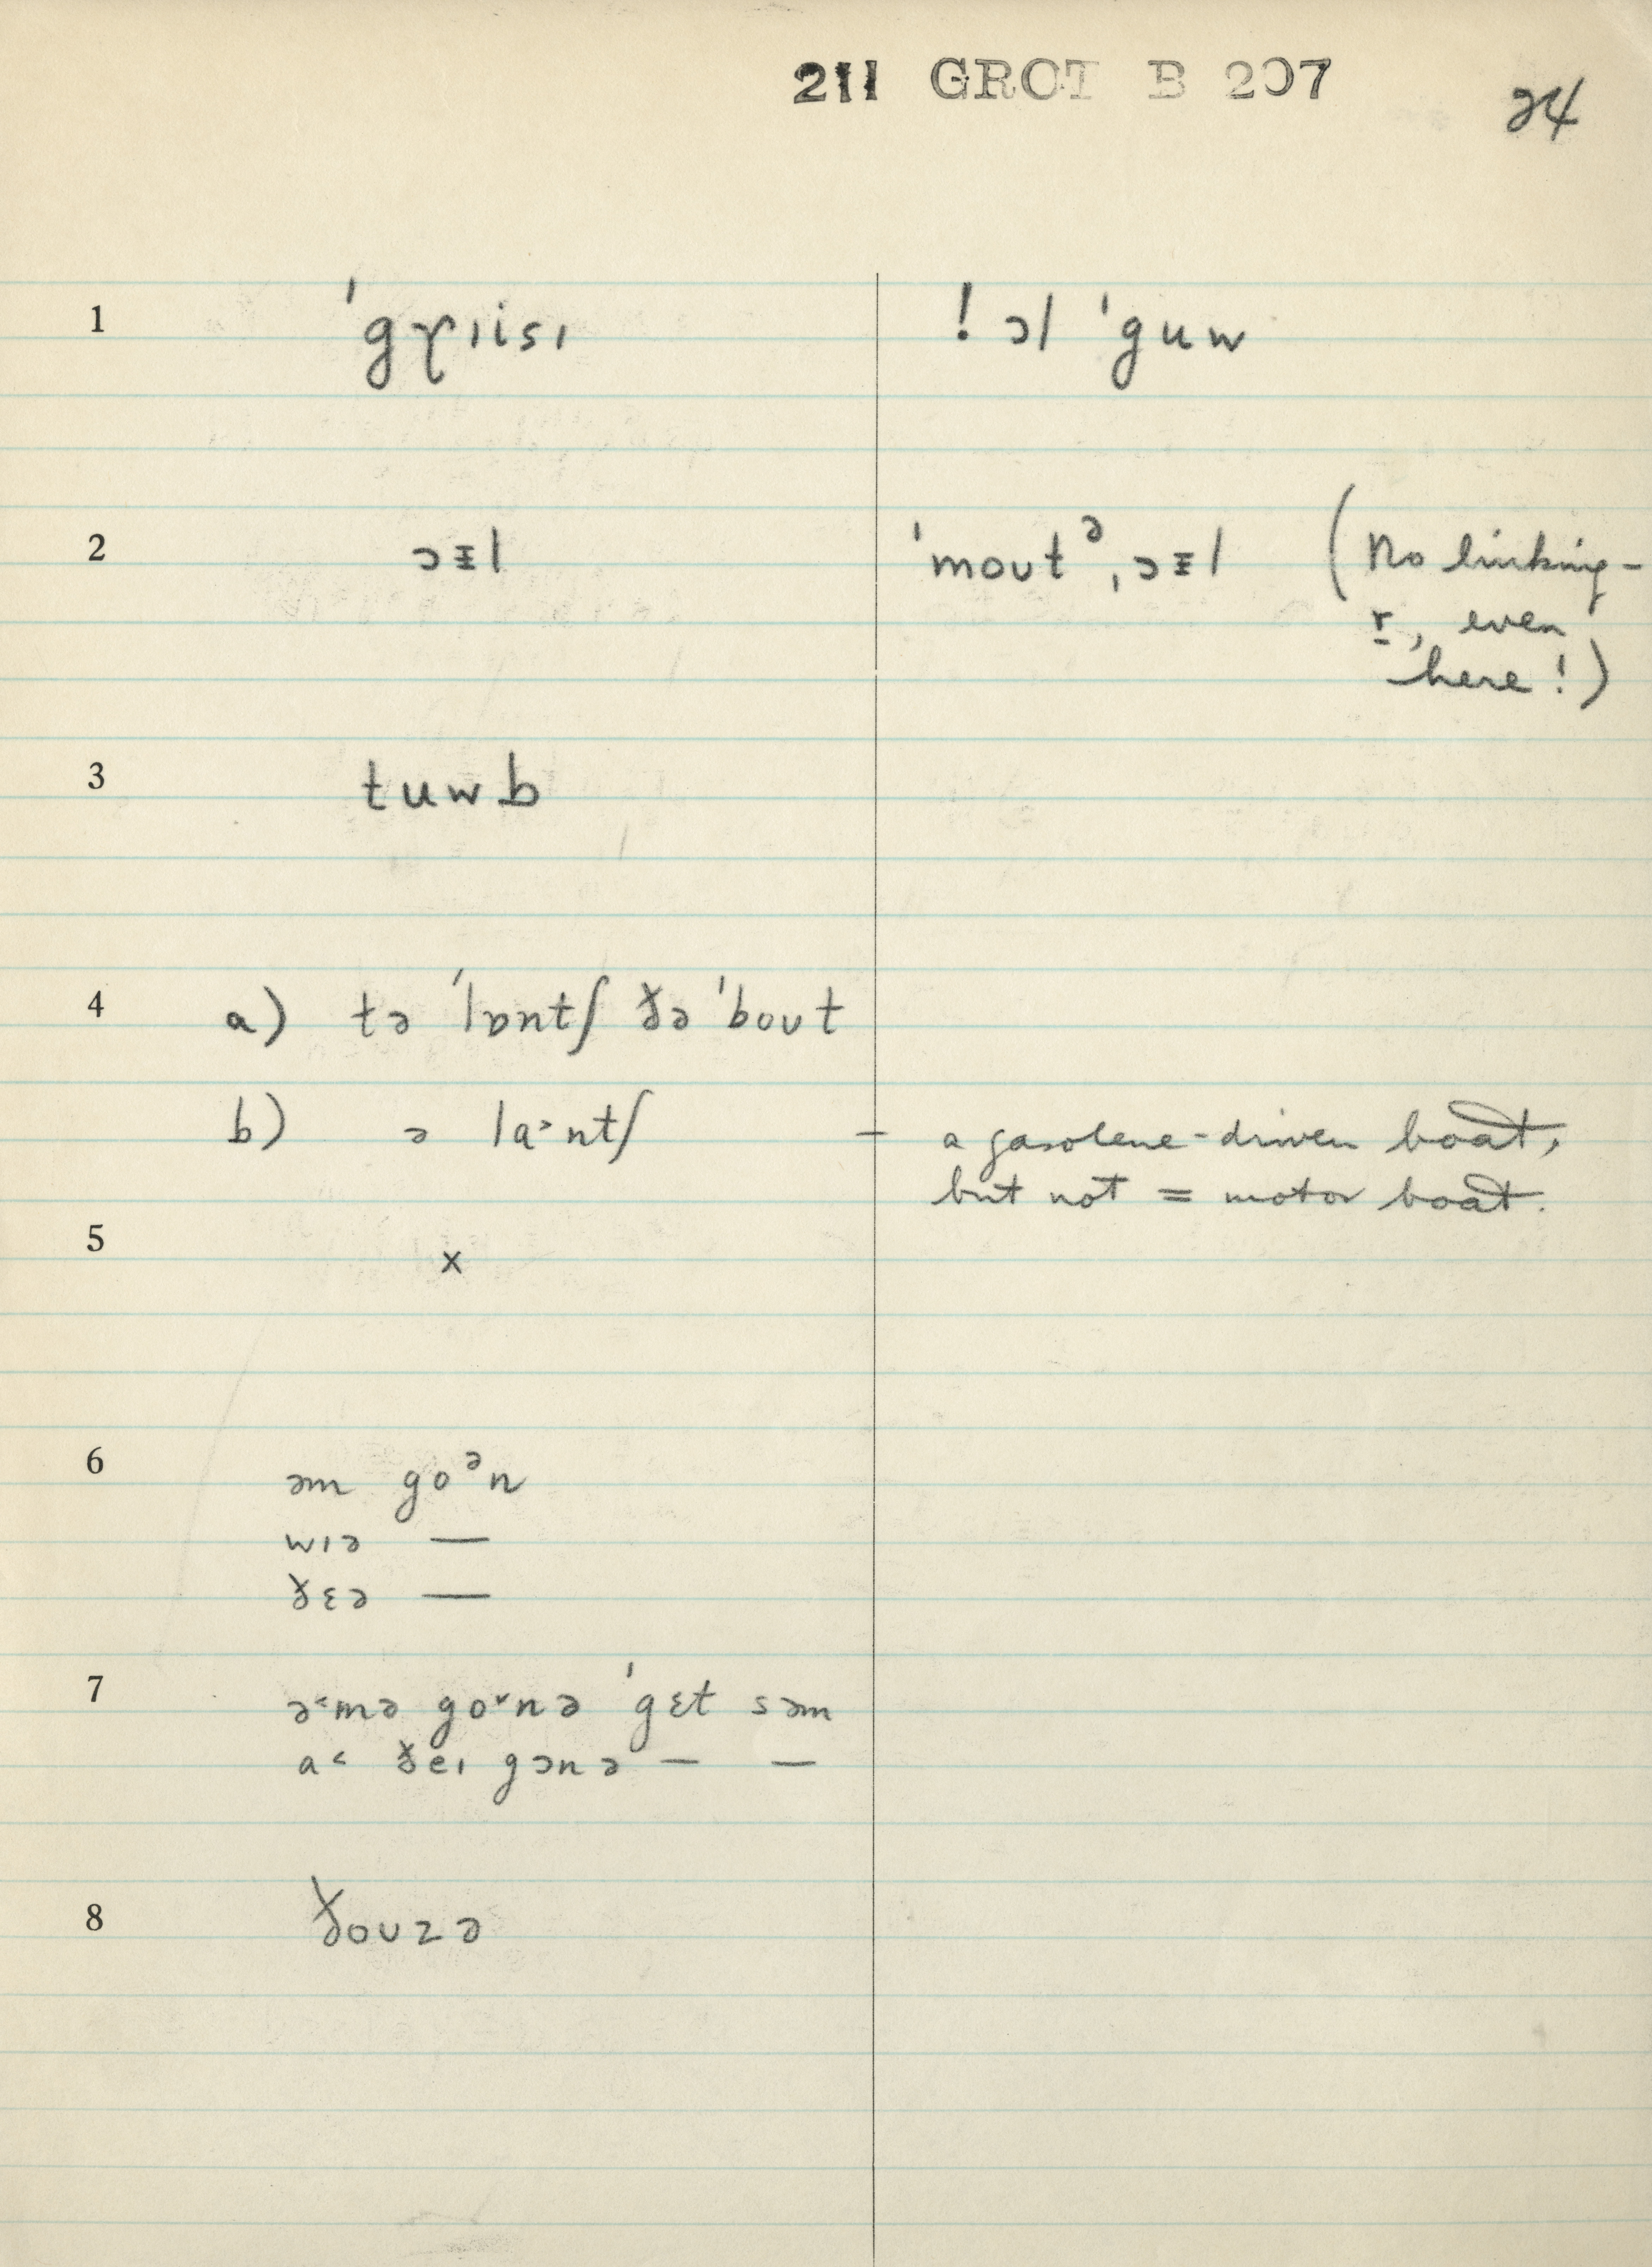 211 GROT B 207
24
1 ˈgɤɪisɪ ! ɔl ˈguw
2 ɔɪl ˈmoʊtᵊ ˌɔɪl (No linking-
r, even
here!)
3 tuwb
4 a) tə ˈlɒntʃ ðə ˈboʊt
b) ə la˃ntʃ — a gasolene-driven boat,
but not = motor boat.
5 x
6 əm goᵊn
wɪə —
ðɛə —
7 ə˂mə go˅nə ˈgɛt səm
a˂ ðeɪ gɔnə — —
8 ðoʊzə